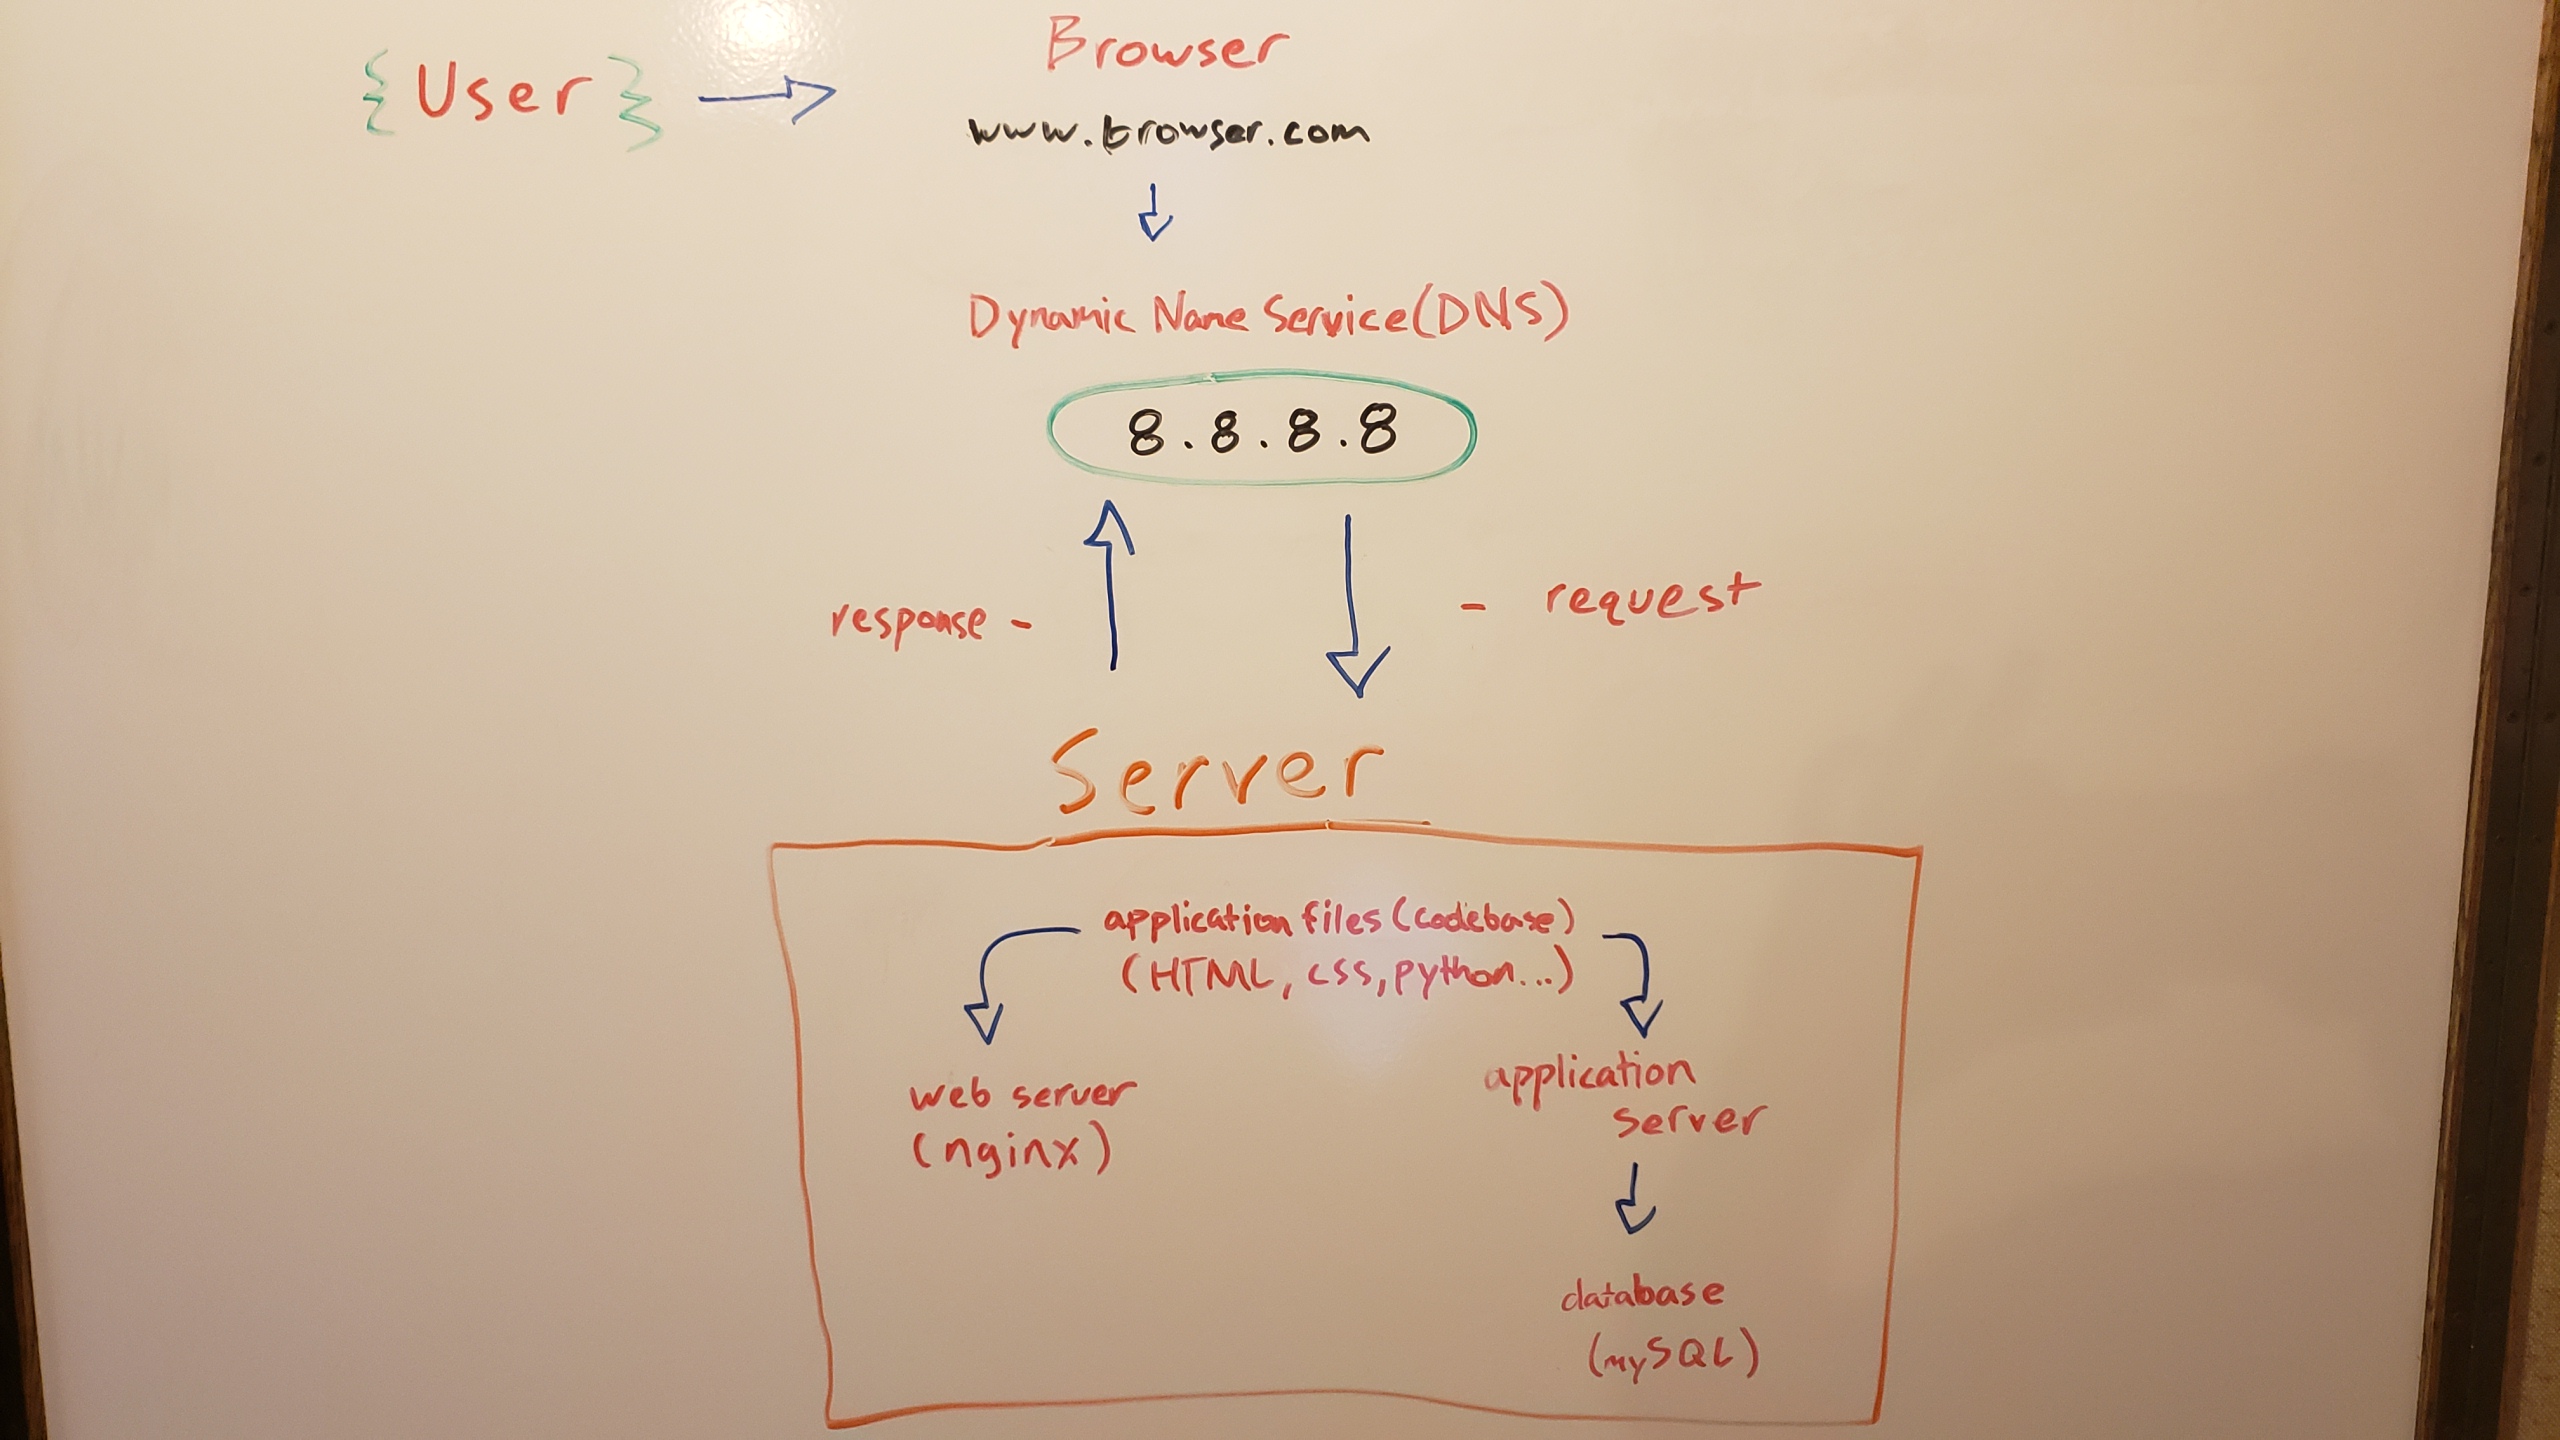 {User}
Browser
www.browser.com
Dynamic Name Service(DNS)
8.8.8.8
response -
- request
Server
application files (codebase)
(HTML, CSS, python...)
web server
(nginx)
application
server
database
(mySQL)